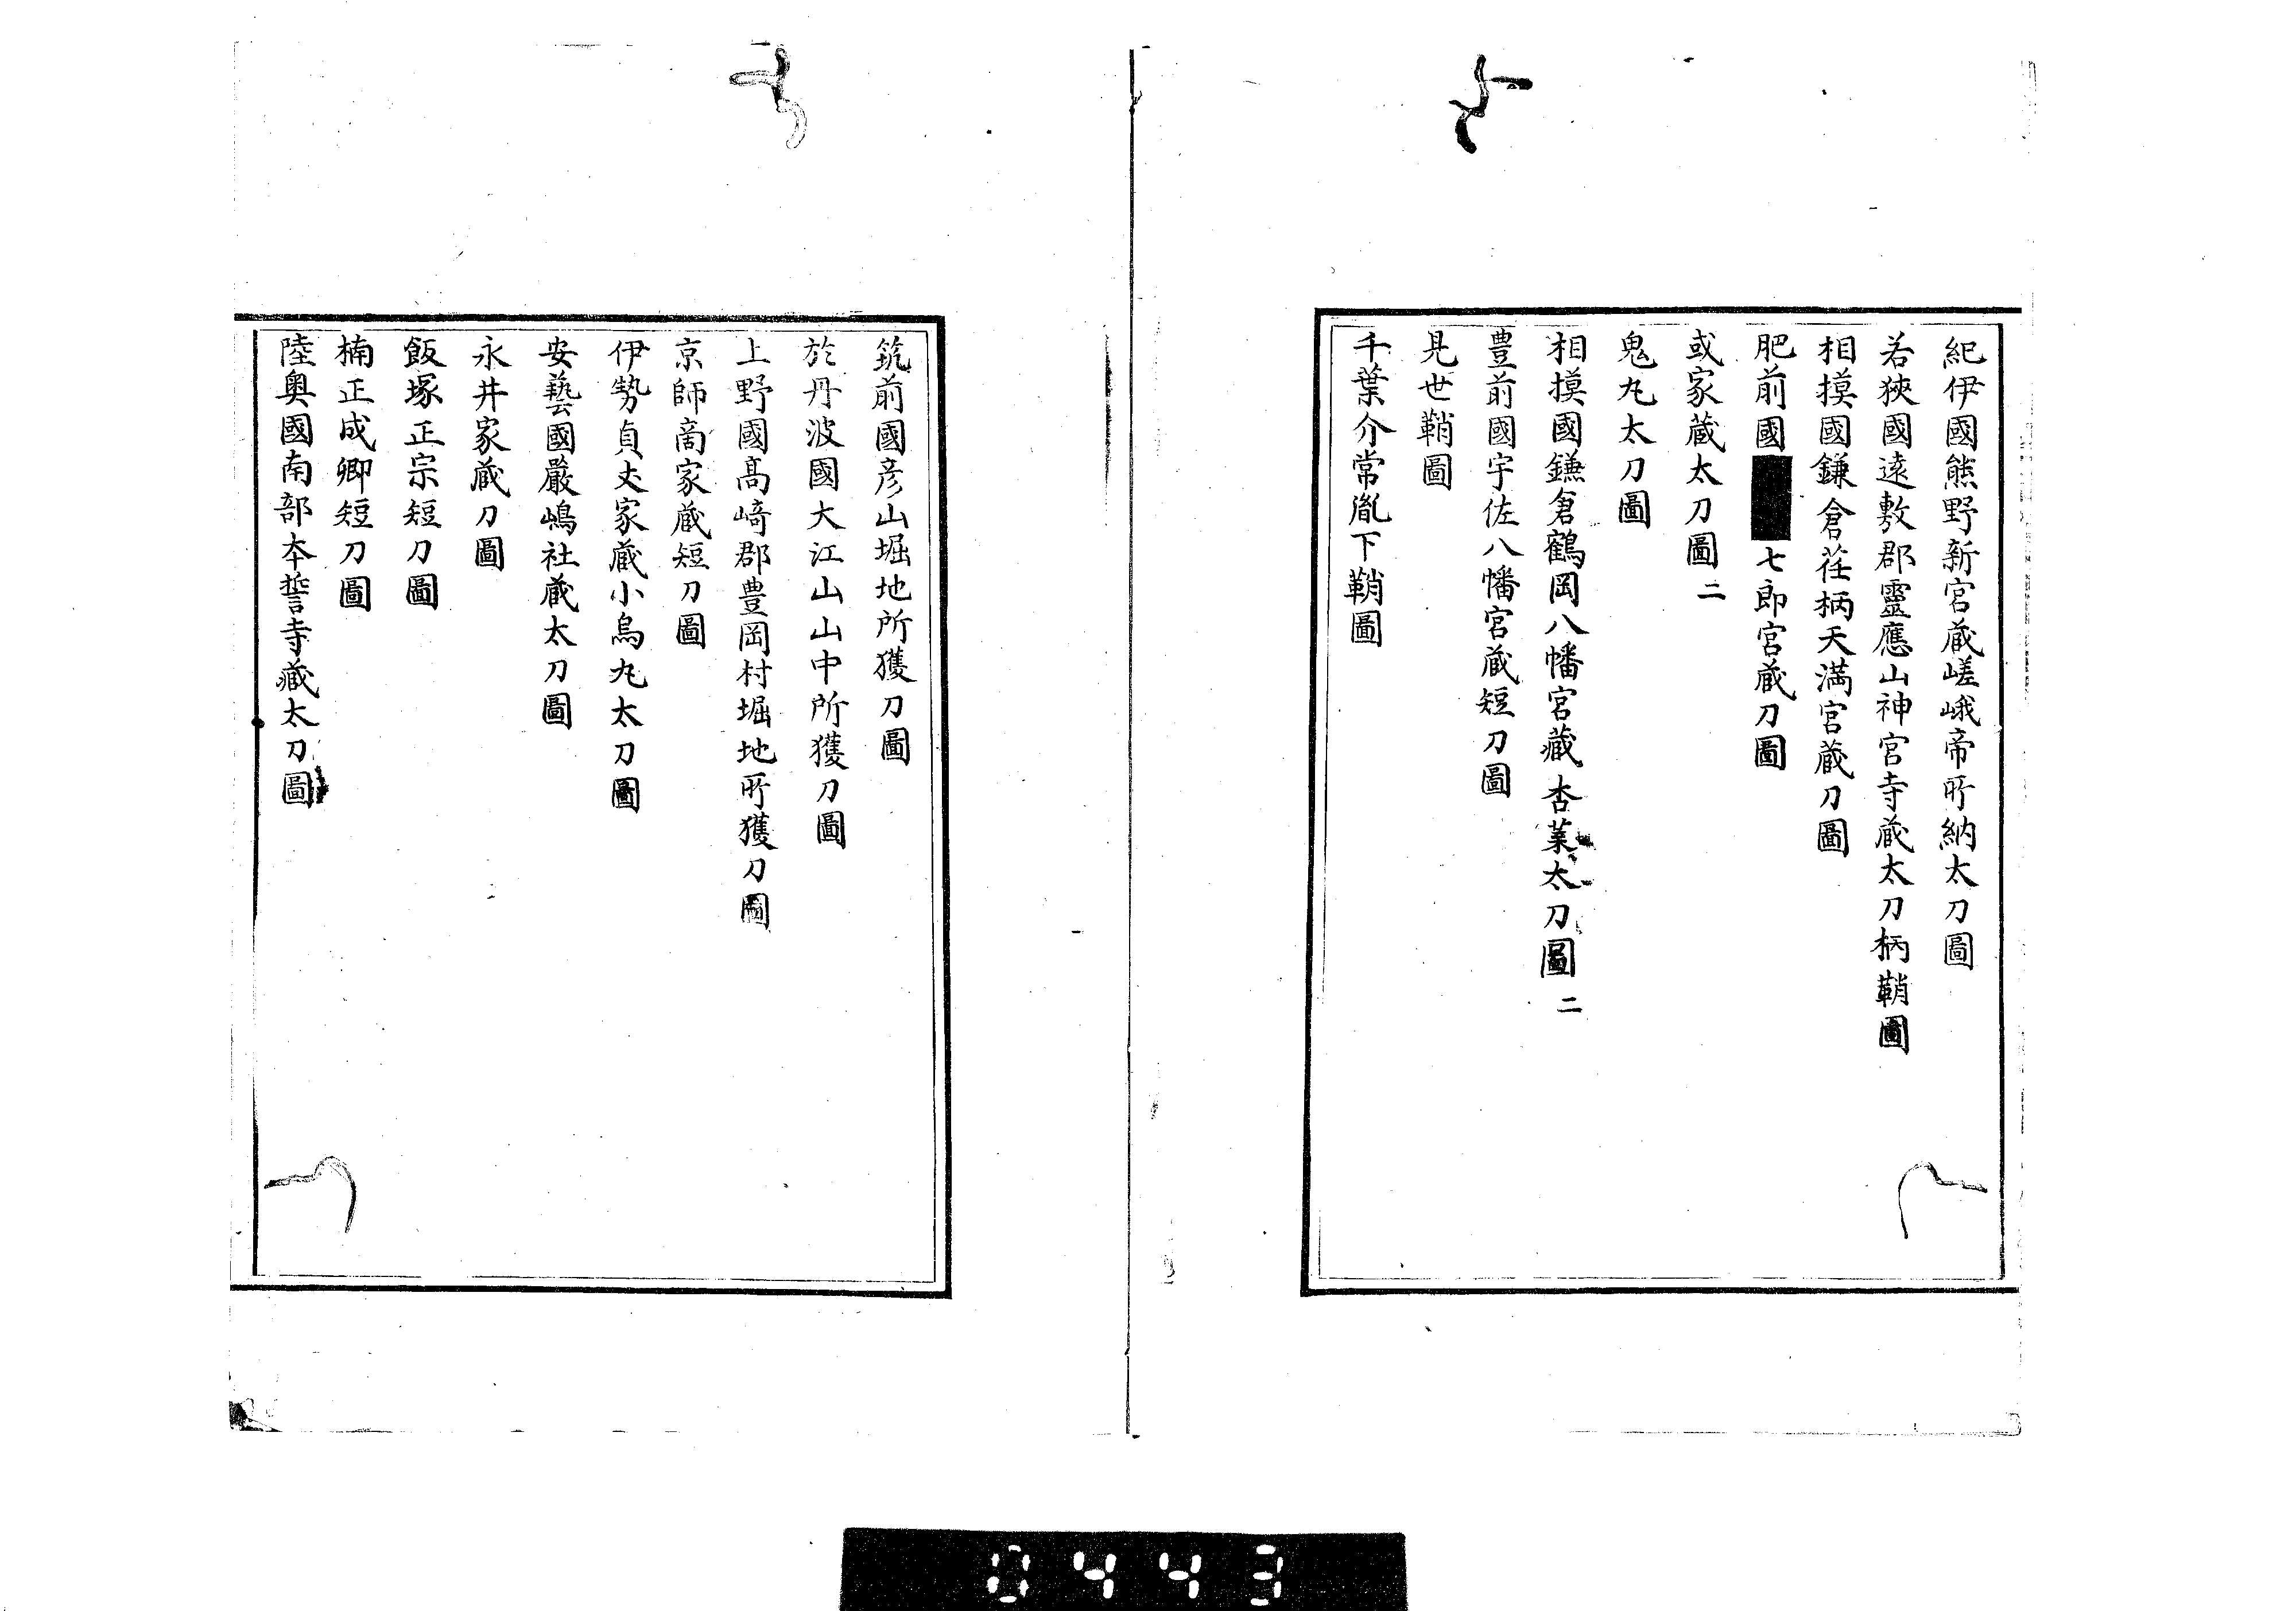 紀伊國熊野新宮蔵嵯峨帝所納太刀圖
若狹國遠敷郡靈應山神宮寺蔵太刀柄鞘圖
相摸國鎌倉荏柄天満宮蔵刀圖
肥前國七郎宮蔵刀圖
或家蔵太刀圖二
鬼丸太刀圖
相摸國鎌倉鶴岡八幡宮蔵杏葉太刀圖二
豊前國宇佐八幡宮蔵短刀圖
見世鞘圖
千葉介常胤下鞘圖
筑前國彦山堀地所獲刀圖
於丹波國大江山山中所獲刀圖
上野國高﨑郡豊岡村堀地所獲刀圖
京師啇家蔵短刀圖
伊勢貞丈家蔵小烏丸太刀圖
安藝國嚴嶋社蔵太刀圖
永井家蔵刀圖
飯塚正宗短刀圖
楠正成卿短刀圖
陸奥國南部本誓寺蔵太刀圖
0443